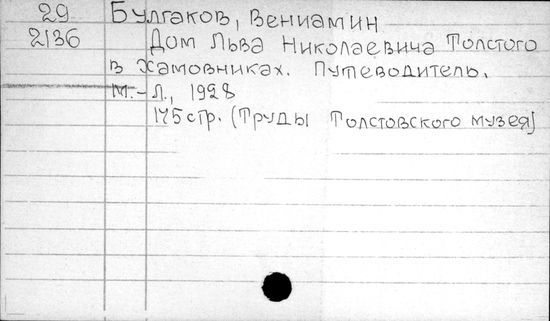 29 Булгаков, Вениамин
2136 Дом Льва Николаевича Толстого
в Хамовниках. Путеводитель.
М.-Л., 1928
175 стр. (Труды Толстовского музея)